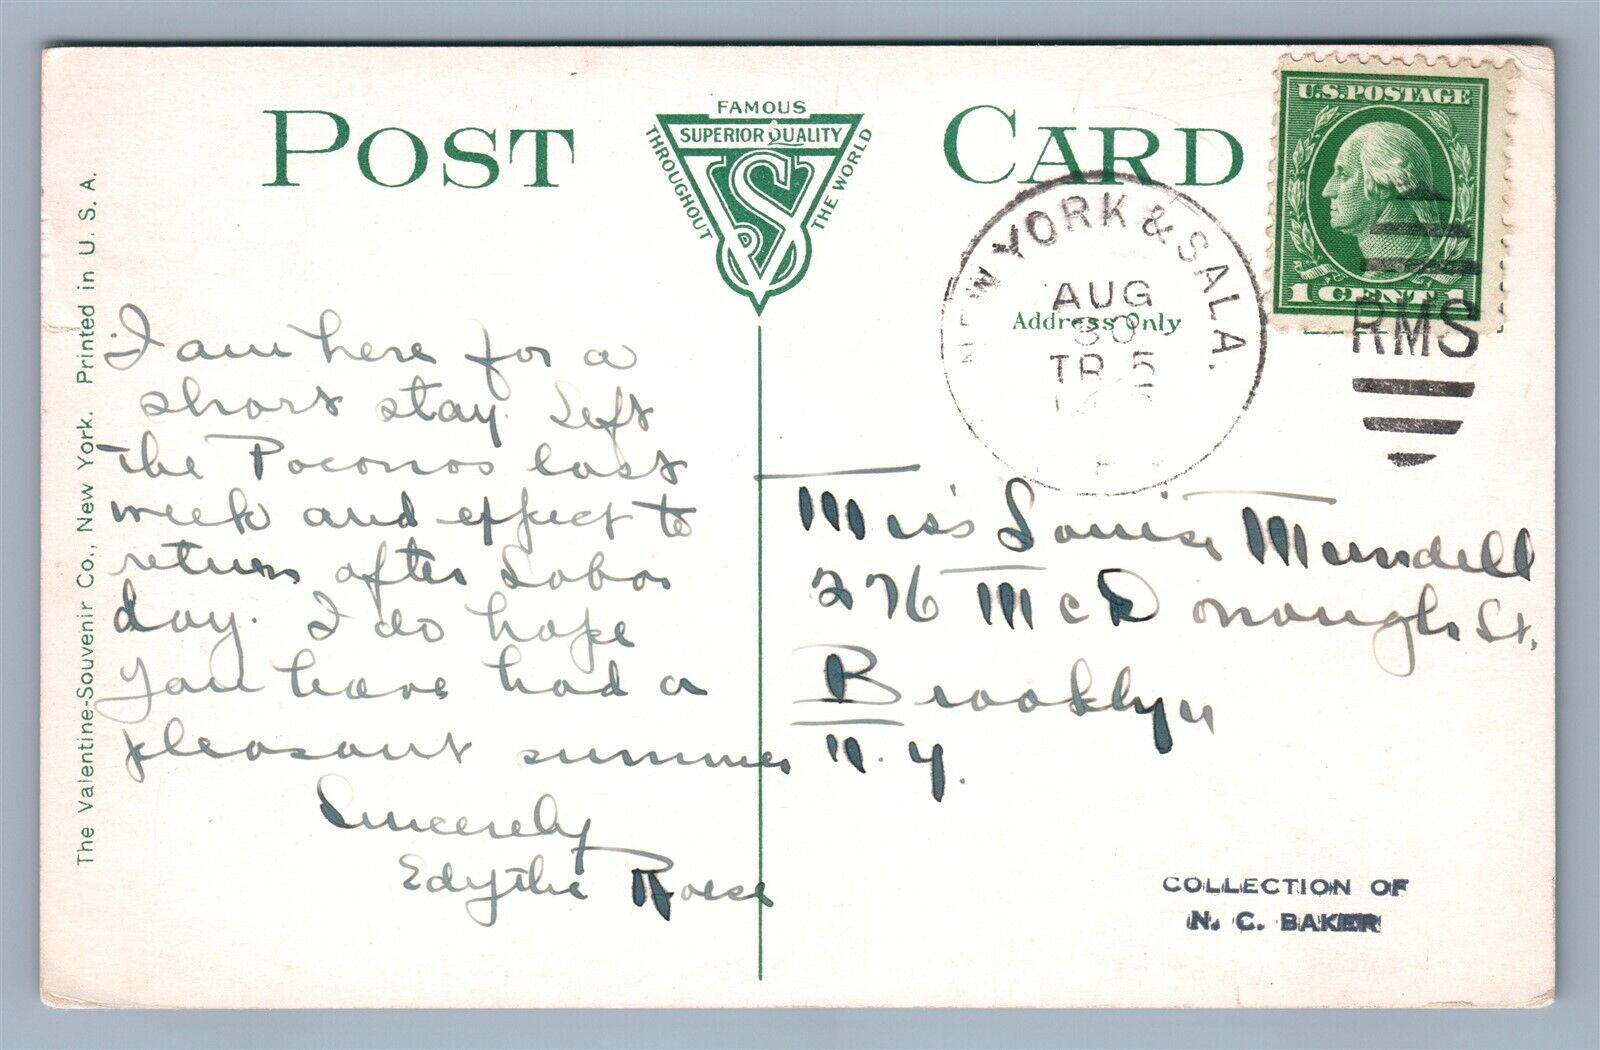 POST CARD
FAMOUS
SUPERIOR QUALITY
THROUGHOUT
THE WORLD
VS
U.S. POSTAGE
1 CENT
NEW YORK & SALA.
AUG
30
TR 5
RMS
Address Only
The Valentine-Souvenir Co., New York. Printed in U. S. A.
I am here for a
short stay. Left
the Poconos last
week and expect to
return after Labor
day. I do hope
you have had a
pleasant summer
Sincerely
Edythe
Miss Louise Mundell
276 McDonough St.
Brooklyn
N. Y.
COLLECTION OF
N. C. BAKER